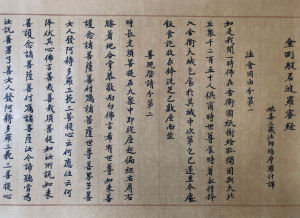 金剛般若波羅蜜經
姚秦三藏法師鳩摩羅什譯
法會因由分第一
如是我聞一時佛在舍衛國祇樹給孤獨園與大比
丘衆千二百五十人俱爾時世尊食時著衣持鉢
入舍衛大城乞食於其城中次第乞已還至本處
飯食訖收衣鉢洗足已敷座而坐
善現啓請分第二
時長老須菩提在大衆中即從座起偏袒右肩右
膝著地合掌恭敬而白佛言希有世尊如來善
護念諸菩薩善付囑諸菩薩世尊善男子善
女人發阿耨多羅三藐三菩提心應云何住云何
降伏其心佛言善哉善哉須菩提如汝所說如來
善護念諸菩薩善付囑諸菩薩汝今諦聽當為
汝說善男子善女人發阿耨多羅三藐三菩提心